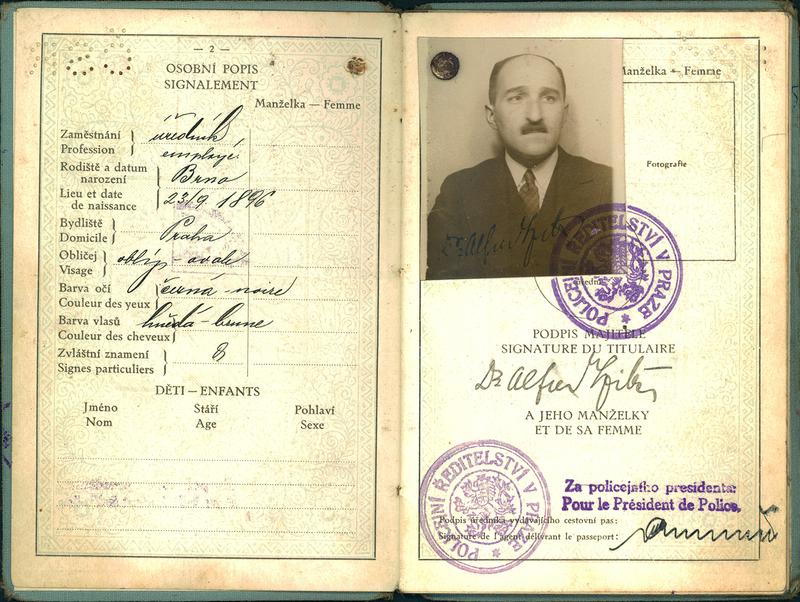 — 2 —
OSOBNÍ POPIS
SIGNALEMENT
Manželka — Femme
Zaměstnání
Profession
úředník
employé
Rodiště a datum
narození
Brno
Lieu et date
de naissance
23/9. 1896
Bydliště
Domicile
Praha
Obličej
Visage
oblý - ovale
Barva očí
Couleur des yeux
černá - noire
Barva vlasů
Couleur des cheveux
hnědá - brune
Zvláštní znamení
Signes particuliers
DĚTI — ENFANTS
Jméno Stáří Pohlaví
Nom Age Sexe
Manželka — Femme
Fotografie
Dr Alfred
POLICEJNÍ ŘEDITELSTVÍ V PRAZE
PODPIS MAJITELE
SIGNATURE DU TITULAIRE
Dr Alfred
A JEHO MANŽELKY
ET DE SA FEMME
POLICEJNÍ ŘEDITELSTVÍ V PRAZE
Za policejního presidenta:
Pour le Président de Police.
Podpis úředníka vydávajícího cestovní pas:
Signature de l'agent délivrant le passeport: